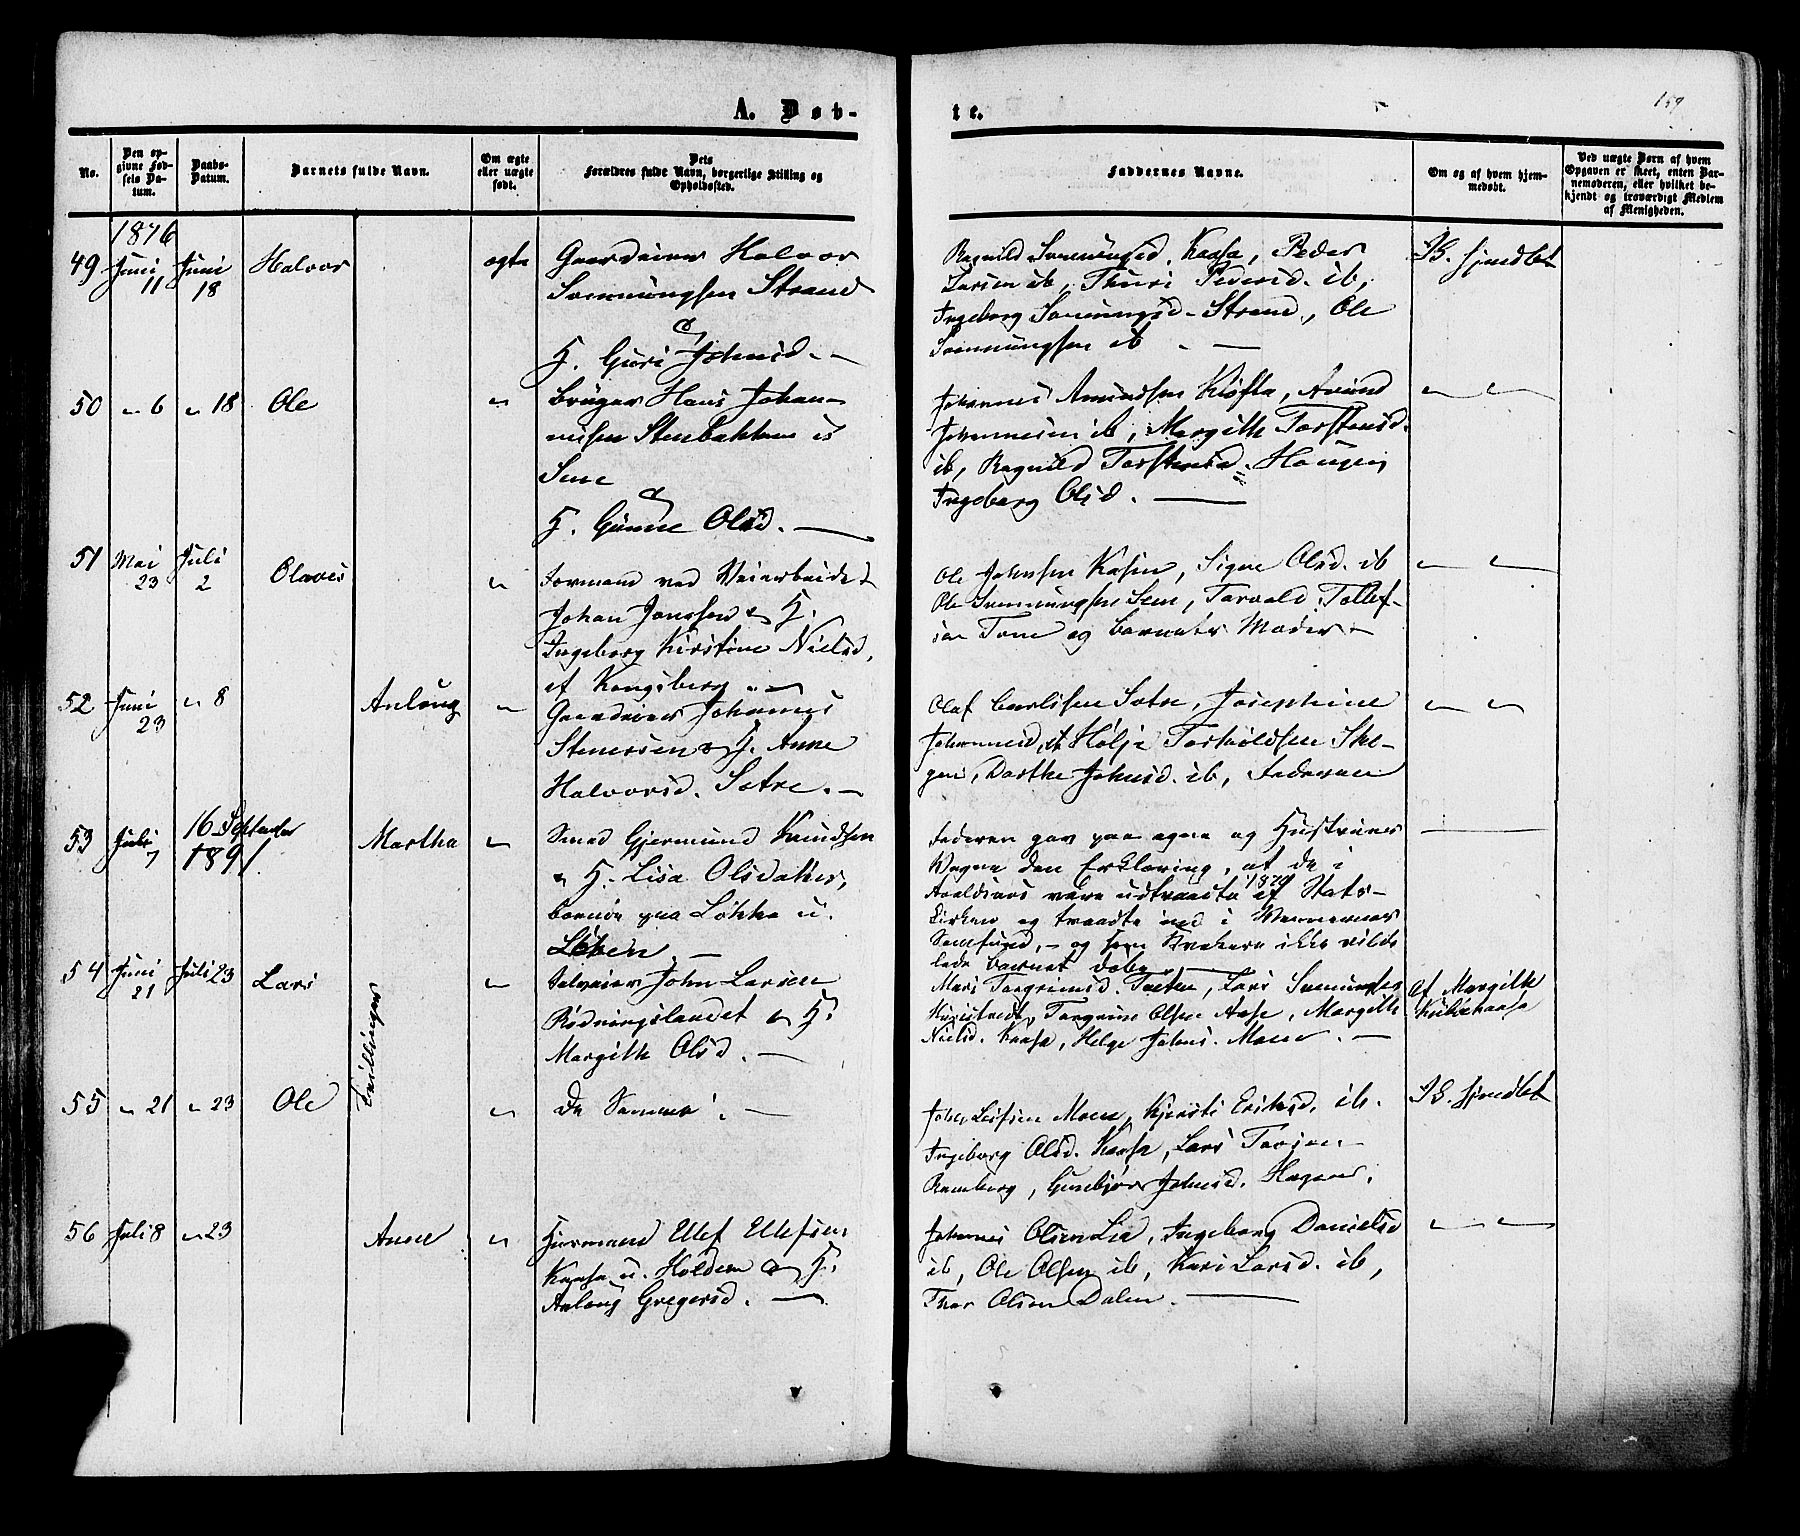 A. Døb-
te.
159
No.
Den op-
givne Fød-
sels Da-
tum.
Daabs-
Datum.
Barnets fulde Navn.
Om ægte
eller uægte
født.
Dets
Forældres fulde Navn, borgerlige Stilling og
Opholdssted.
Faddernes Navne.
Om og af hvem hjem-
medøbt.
Ved uægte Børn af hvem
Opgaven er skeet, enten Bar-
nemoderen, eller hvilket be-
kjendt og troværdigt Medlem
af Menigheden.
1876
49 Juni 11 Juni 18 Halvor ægte
Gaardeier Halvor
Svennungsen Strand
&
H. Guri Johnsd. —
Ragnild Svennungsd. Kaasa, Peder
Larsen ib, Thuri Pedersd. ib,
Ingeborg Svennungsd. Strand, Ole
Svennungsen ib —
I B. hjmdbt
50 " 6 " 18 Ole "
Bruger Hans Johan-
nesen Stenbakken u
Sem
&
H. Gunne Olsd. —
Johannes Amundsen Kløfta, Avund
Johannesen ib, Margith Torstensd.
ib, Ragnild Torstensd. Haugen
Ingeborg Olsd. —
" "
51 Mai 23 Juli 2 Olaves "
Formand ved Veiarbeidet
Johan Jonssen & H.
Ingeborg Kirstine Nielsd.
af Kongsberg. —
Ole Johnsen Kasin, Signe Olsd. ib
Ole Svennungsen Sem, Torvald Tollef-
sen Tome og Barnets Moder —
" "
52 Juni 23 " 8 Anlaug "
Gaardeier Johannes
Stenersen & H. Anne
Halvorsd. Sætre. —
Olaf Carlssen Sætre, Josephine
Johannesd. ib Hølje Torkildsen Ske-
gen, Dorthe Johnsd. ib, Faderen
" "
53 Juli 7 16 September 1891 Martha "
Smed Gjermund Knudsen
& H. Lisa Olsdatter,
boende paa Løkka u.
Løken —
Faderen gav paa egne og Hustrues
Vegne den Erklæring, at de i
Aaret 1879 vare udtraadte af Stats-
kirken og traadte ind i Vennernes
Samfund, — og som Kvækere ikke vilde
lade Barnet døbe —
54 Juni 21 Juli 23 Lars "
Selveier John Larsen
Rødningslandet & H.
Margith Olsd. —
Mari Torgrimsd. Torgrim Olsen Aase, Margith
Nielsd. Kaasa, Helge Johns. Moen. —
af Margith
Kaasa
Tvillinger
55 " 21 " 23 Ole "
De Samme. —
John Leifsen Moen, Kjersti Eriksd. ib.
Ingeborg Olsd. Kaasa, Lars
Ramberg, Gunbjør Johnsd. Hagen.
I B. hjmdbt
56 Juli 8 " 23 Anne "
Huusmand Ellef Ellefsen
Kaasa u. Holden & H.
Anlaug Gregersd. —
Johannes Olsen Lia, Ingeborg Danielsd
ib, Ole Olsen ib, Kari Larsd. ib,
Thor Olsen Dalen. —
" "